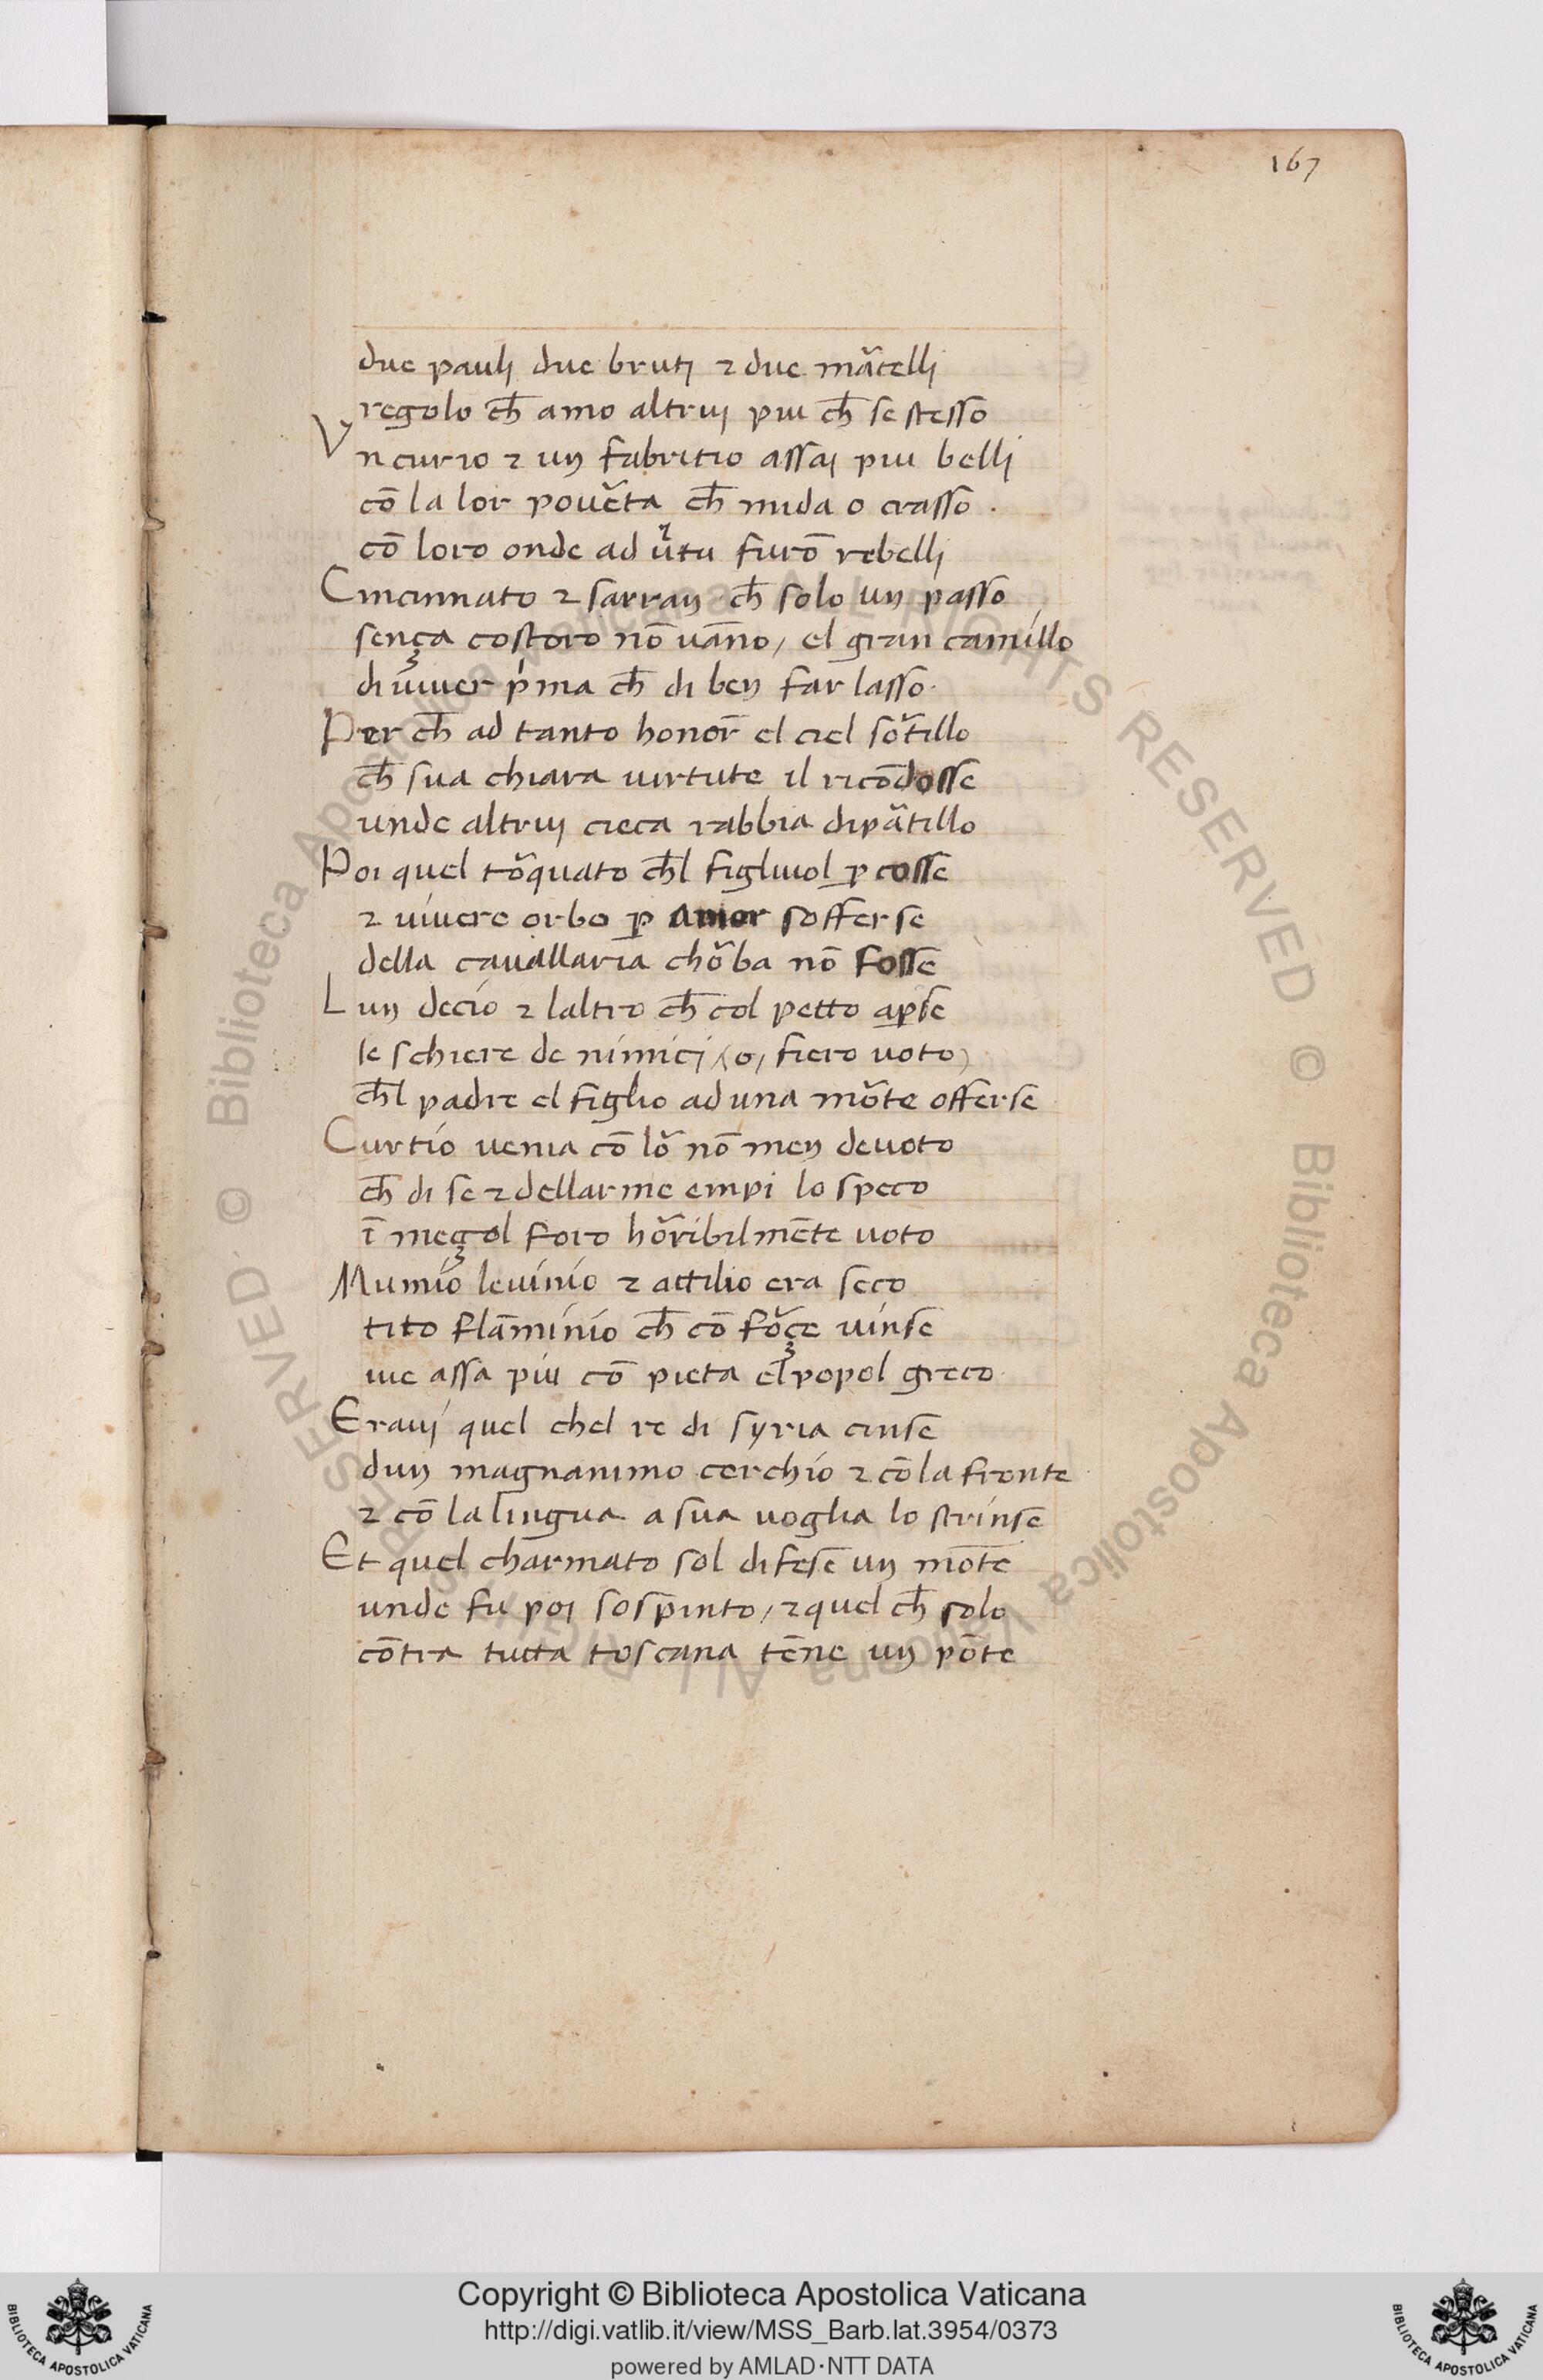 167
due paulj due brutj ⁊ due mãcellj
regolo ch̄ amo altruj piu ch̄ se stesso
V
n curio ⁊ un fabritio assaj piu bellj
cõ la lor pouẽta ch̄ mida o crasso .
cõ loro onde ad ũtu furõ rebellj
Cincinnato ⁊ sarran ch̄ solo un passo
sença costoro nõ uãno / el gran camillo
di uiuer p̍ma ch̄ di ben far lasso.
Per ch̄ ad tanto honor̃ el ciel sõtillo
ch̄ sua chiara uirtute il ricõdosse
unde altruj cieca rabbia dipãtillo
Poi quel tõquato ch̄l figliuol ꝑcosse
⁊ uiuere orbo ꝑ amor sofferse
della cauallaria chõba nõ fosse
Lun decio ⁊ laltro ch̄ col petto aꝑse
le schiere de nimicj (o, fiero uoto)
ch̄l padre el figlio ad una mõte offerse
Curtio uenia cõ lõ nõ men deuoto
ch̄ di se ⁊ dellarme empi lo speco
ĩ meçol foro hõribilmẽte uoto
Mumio leuinio ⁊ attilio era seco
tito flãminio ch̄ cõ fõçe uinse
iue assa piu cõ pieta el popol greco
Erauj quel chel re di syria cinse
dun magnanimo cerchio ⁊ cõ la fronte
⁊ cõ la lingua a sua uoglia lo strinse
Et quel charmato sol difese un mõte
unde fu poj sospinto / ⁊ quel ch̄ solo
cõtra tutta toscana tẽne un põte
© Biblioteca Apostolica Vaticana ALL RIGHTS RESERVED © Biblioteca Apostolica Vaticana ALL RIGHTS RESERVED
Copyright © Biblioteca Apostolica Vaticana
http://digi.vatlib.it/view/MSS_Barb.lat.3954/0373
powered by AMLAD·NTT DATA
BIBLIOTECA APOSTOLICA VATICANA
BIBLIOTECA APOSTOLICA VATICANA